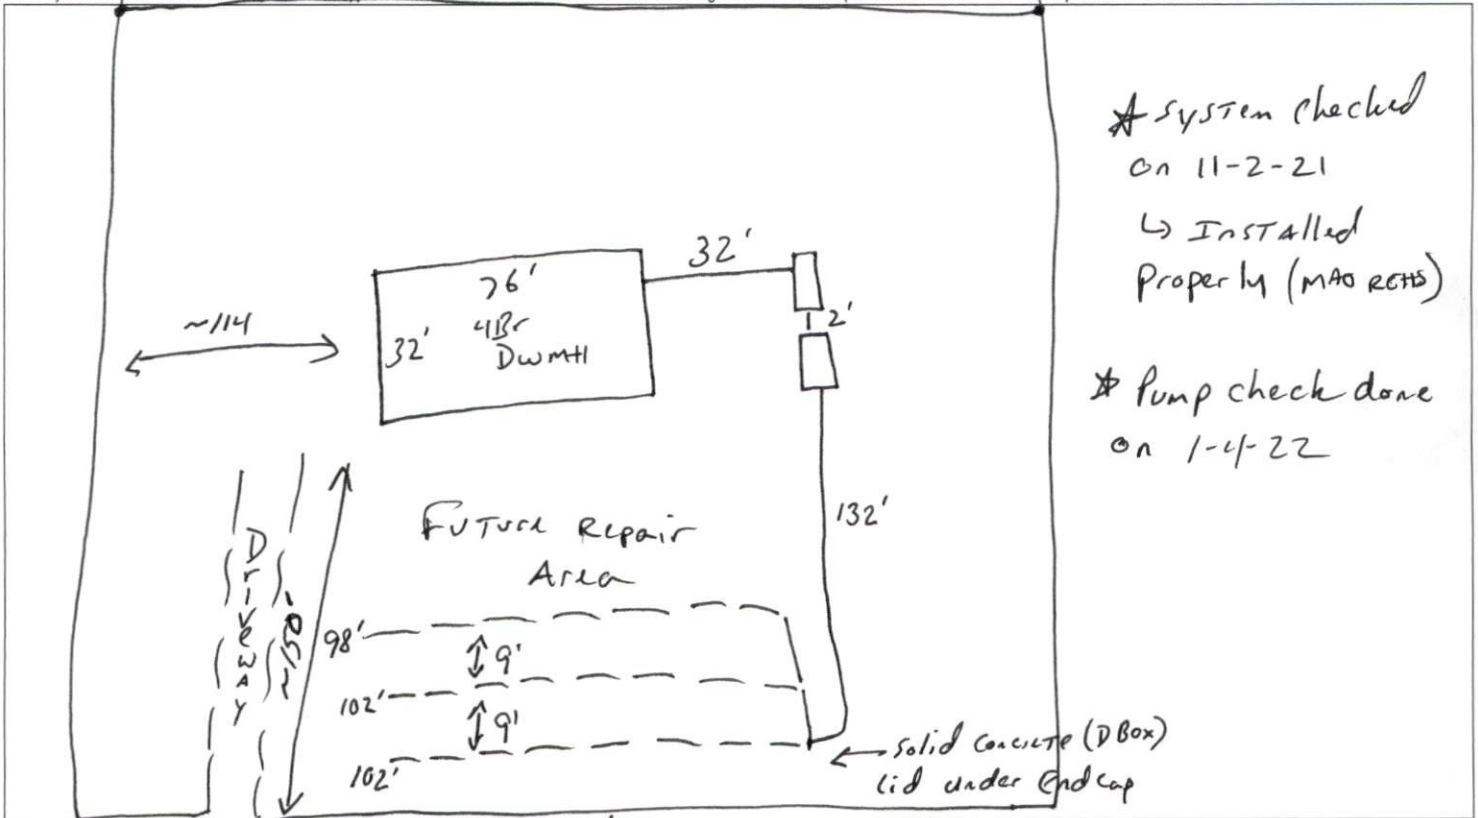 * System Checked
on 11-2-21
↳ Installed
Properly (MAO REHS)
* Pump check done
on 1-4-22
32'
76'
2'
~114
32'
4Br
DWMH
132'
Future Repair
Area
Driveway
~150'
98'
9'
102'
9'
102'
← Solid Concrete (DBox)
lid under Endcap